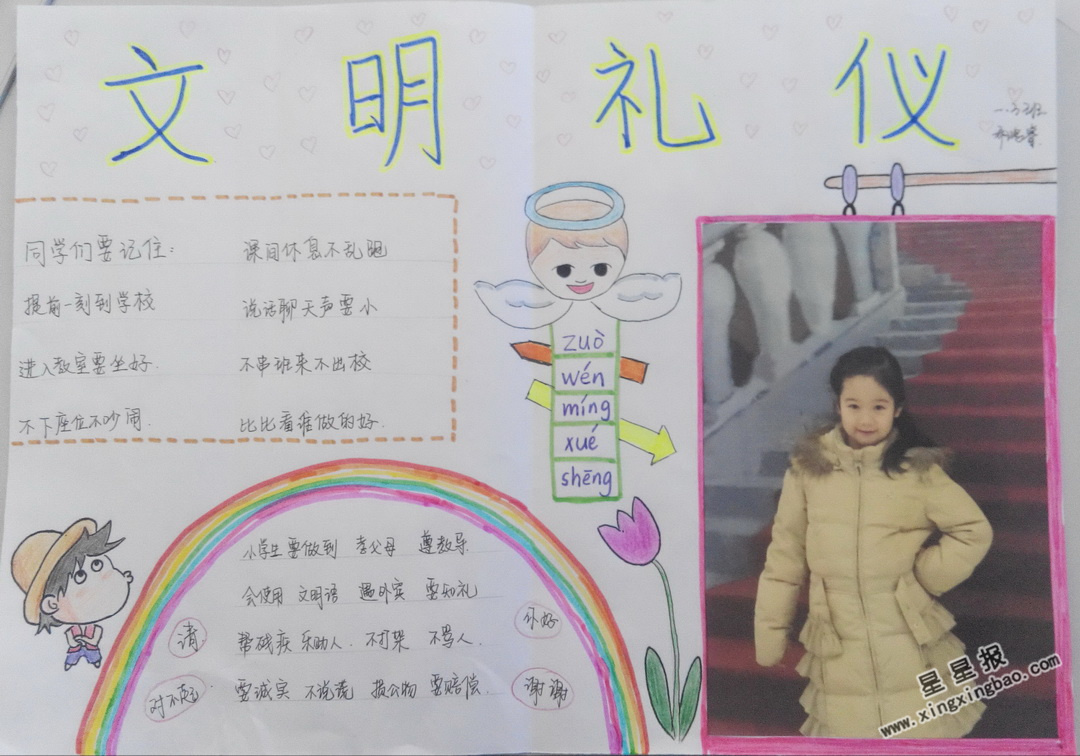 文明礼仪
一.3班
同学们要记住: 课间休息不乱跑
提前一刻到学校 说话聊天声要小
进入教室要坐好. 不串班来不出校
不下座位不吵闹. 比比看谁做的好.
zuò
wén
míng
xué
shēng
小学生要做到 孝父母 遵教导.
会使用 文明语 遇外宾 要知礼
帮残疾 乐助人. 不打架 不骂人.
要诚实 不说谎 损公物 要赔偿.
请
对不起
你好
谢谢
星星报
www.xingxingbao.com